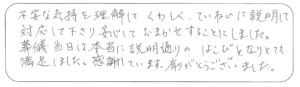 不安な気持を理解して くわしく、ていねいに説明して
対応して下さり安心して おまかせすることにしました。
葬儀当日は本当に説明通りの はこびとなりとても
満足しました。感謝しています。有がとうございました。